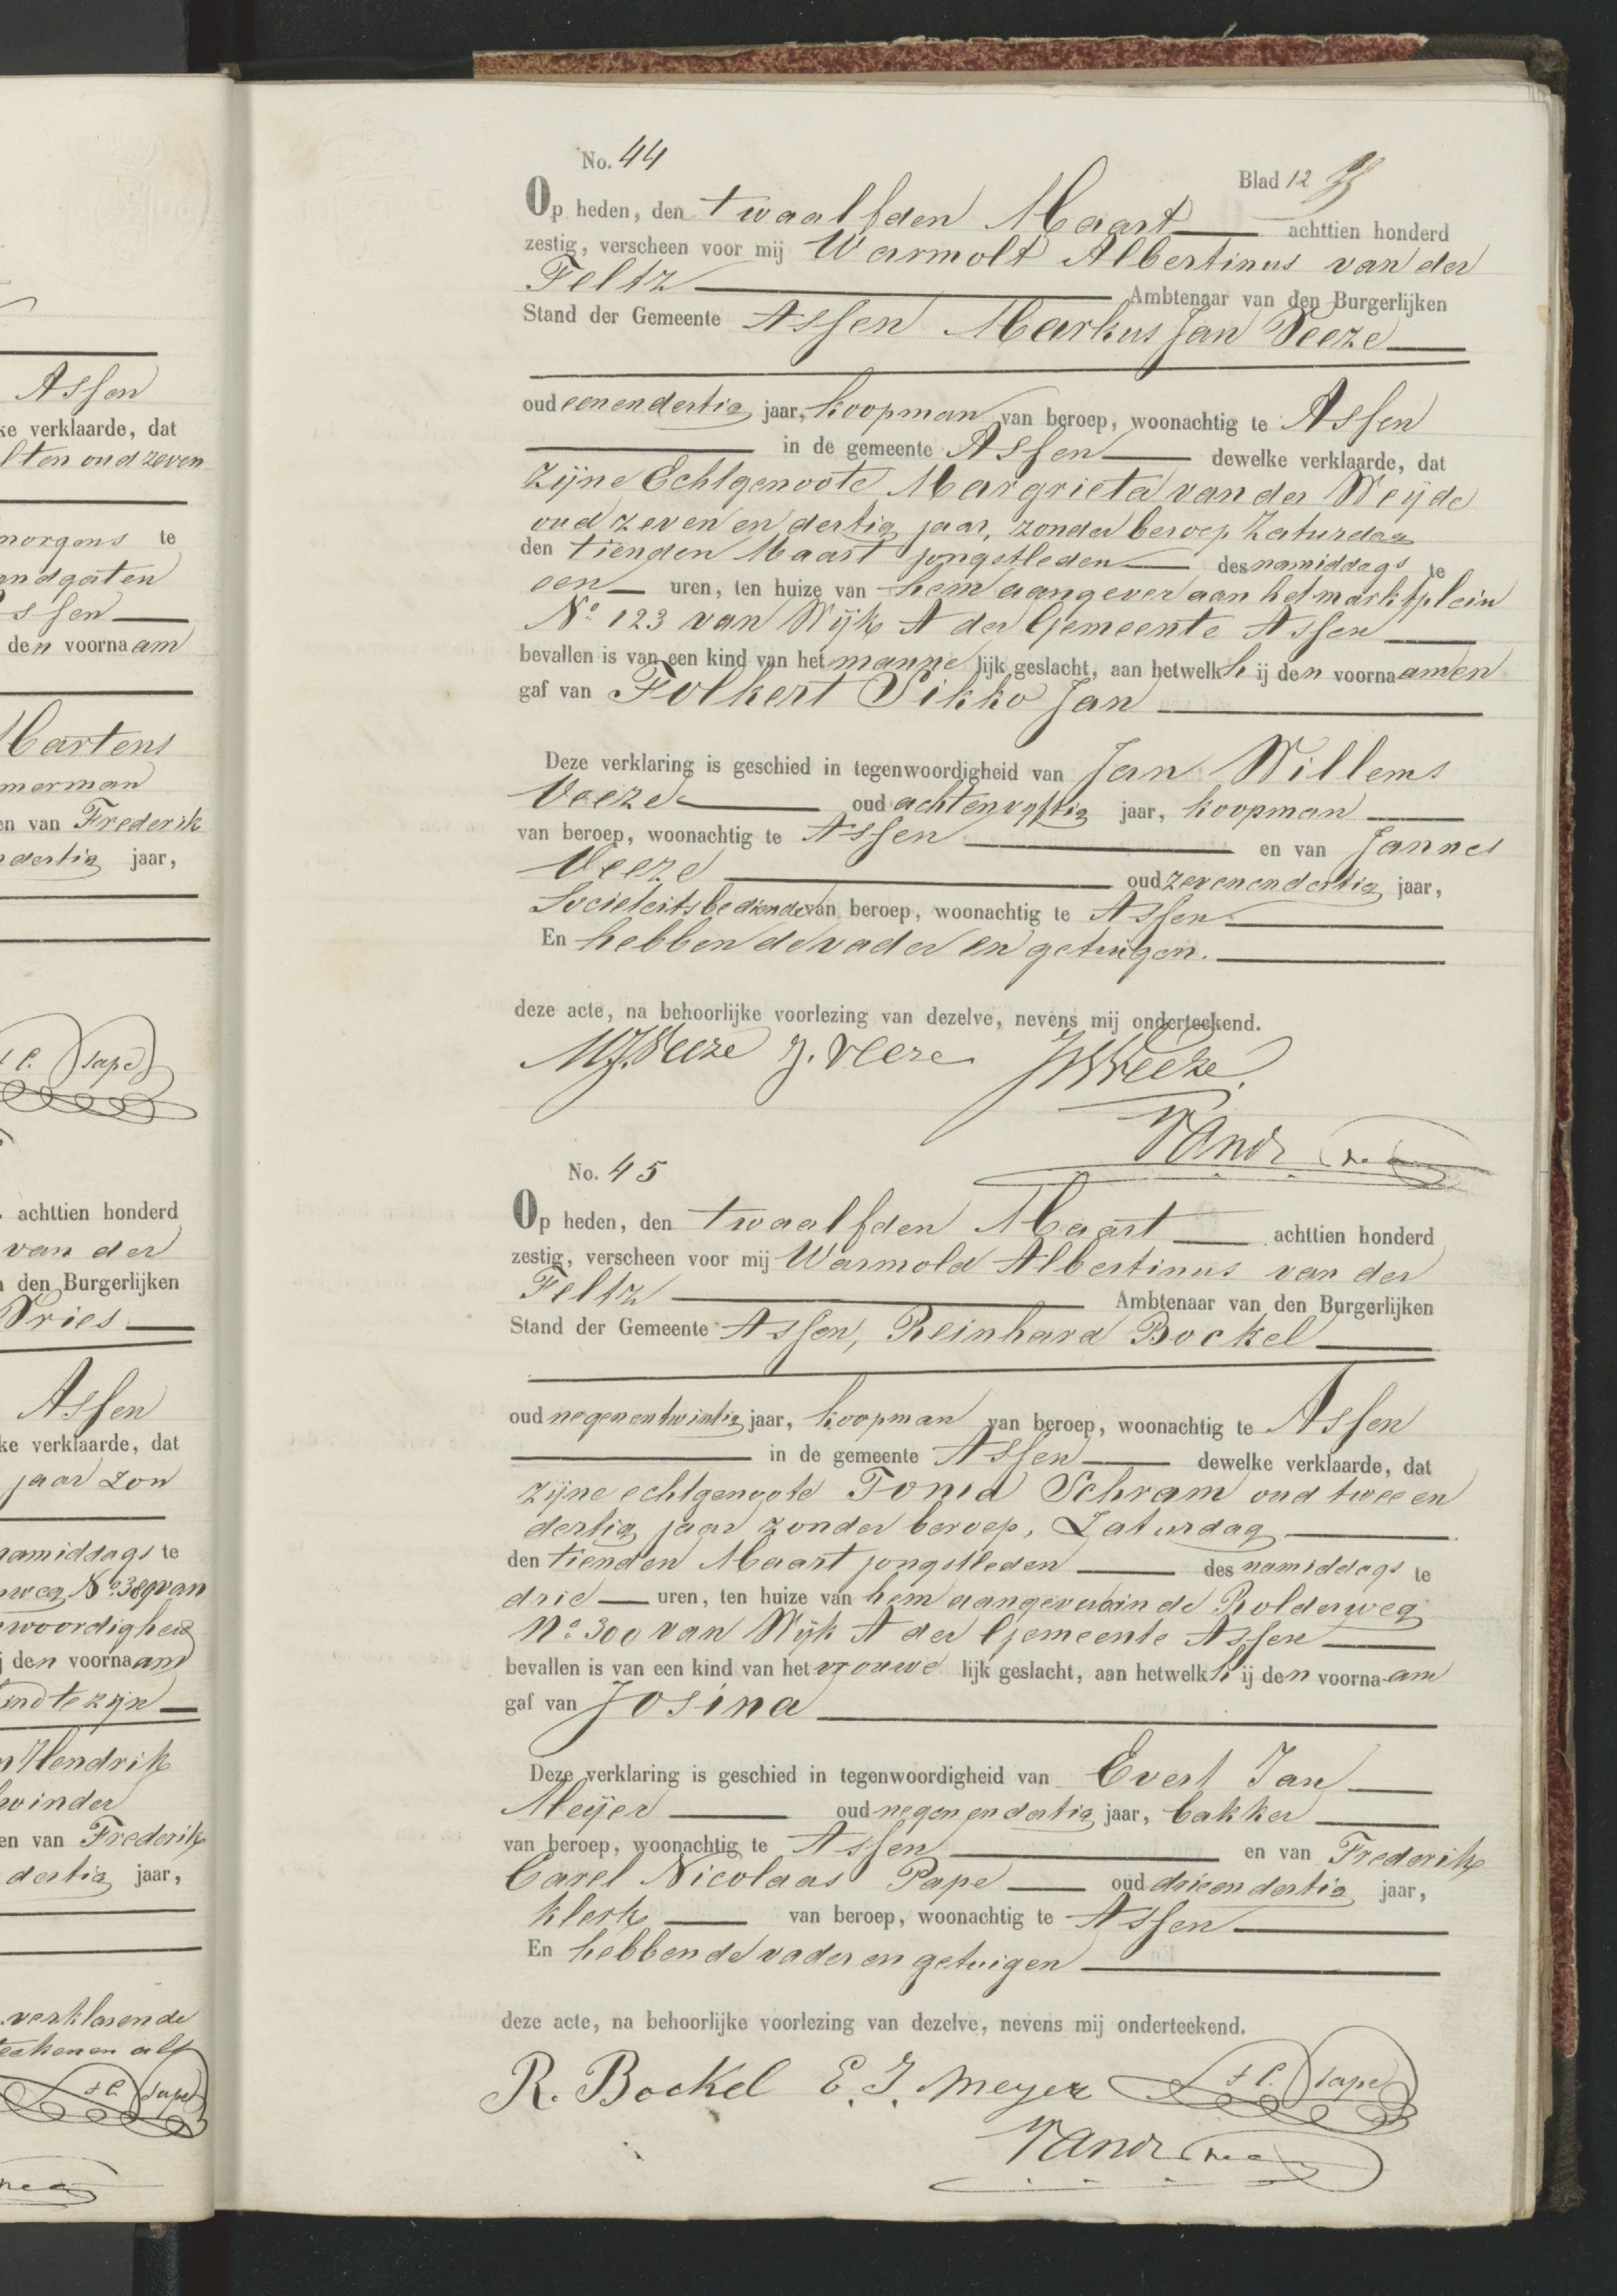 Assen
ke verklaarde, dat
lten oud zeven
morgens te
Assen
den voornaam
Martens
merman
en van Frederik
dertig jaar,
achttien honderd
van der
den Burgerlijken
Vries
Assen
ke verklaarde, dat
jaar zon
namiddags te
weg No. 389 van
woordigheid
den voornaam
Hendrik
winder
en van Frederik
dertig jaar,
verklarende
No. 44
Blad 12
Op heden, den twaalfden Maart achttien honderd
zestig, verscheen voor mij Warmolt Albertinus van der
Feltz Ambtenaar van den Burgerlijken
Stand der Gemeente Assen Markus Jan Veeze
oud eenendertig jaar, koopman van beroep, woonachtig te Assen
in de gemeente Assen dewelke verklaarde, dat
zijne Echtgenoote Margrieta van der Weijde
oud zeven en dertig jaar, zonder beroep Zaturdag
den tienden Maart jongstleden des namiddags te
een uren, ten huize van hem aangever aan het marktplein
No. 123 van Wijk A der Gemeente Assen
bevallen is van een kind van het mannelijk geslacht, aan hetwelk hij den voornaamen
gaf van Folkert Sikko Jan
Deze verklaring is geschied in tegenwoordigheid van Jan Willems
Veeze oud achtenvijftig jaar, koopman
van beroep, woonachtig te Assen en van Jannes
Veeze oud zevenendertig jaar,
Societeitsbediende van beroep, woonachtig te Assen
En hebben de vader en getuigen.
deze acte, na behoorlijke voorlezing van dezelve, nevens mij onderteekend.
MJ Veeze J. Veeze JW Veeze
No. 45
Op heden, den twaalfden Maart achttien honderd
zestig, verscheen voor mij Warmold Albertinus van der
Feltz Ambtenaar van den Burgerlijken
Stand der Gemeente Assen, Reinhard Bockel
oud negenentwintig jaar, koopman van beroep, woonachtig te Assen
in de gemeente Assen dewelke verklaarde, dat
zijne echtgenoote Tonia Schram oud twee en
dertig jaar zonder beroep, Zaturdag
den tienden Maart jongstleden des namiddags te
drie uren, ten huize van hem aangever in de Rolderweg
No. 300 van Wijk A der Gemeente Assen
bevallen is van een kind van het vrouwelijk geslacht, aan hetwelk hij den voornaam
gaf van Josina
Deze verklaring is geschied in tegenwoordigheid van Evert Jan
Meijer oud negenendertig jaar, bakker
van beroep, woonachtig te Assen en van Frederik
Carel Nicolaas Pape oud drieendertig jaar,
klerk van beroep, woonachtig te Assen
En hebben de vader en getuigen
deze acte, na behoorlijke voorlezing van dezelve, nevens mij onderteekend.
R. Bockel E. J. Meyer f C. Pape